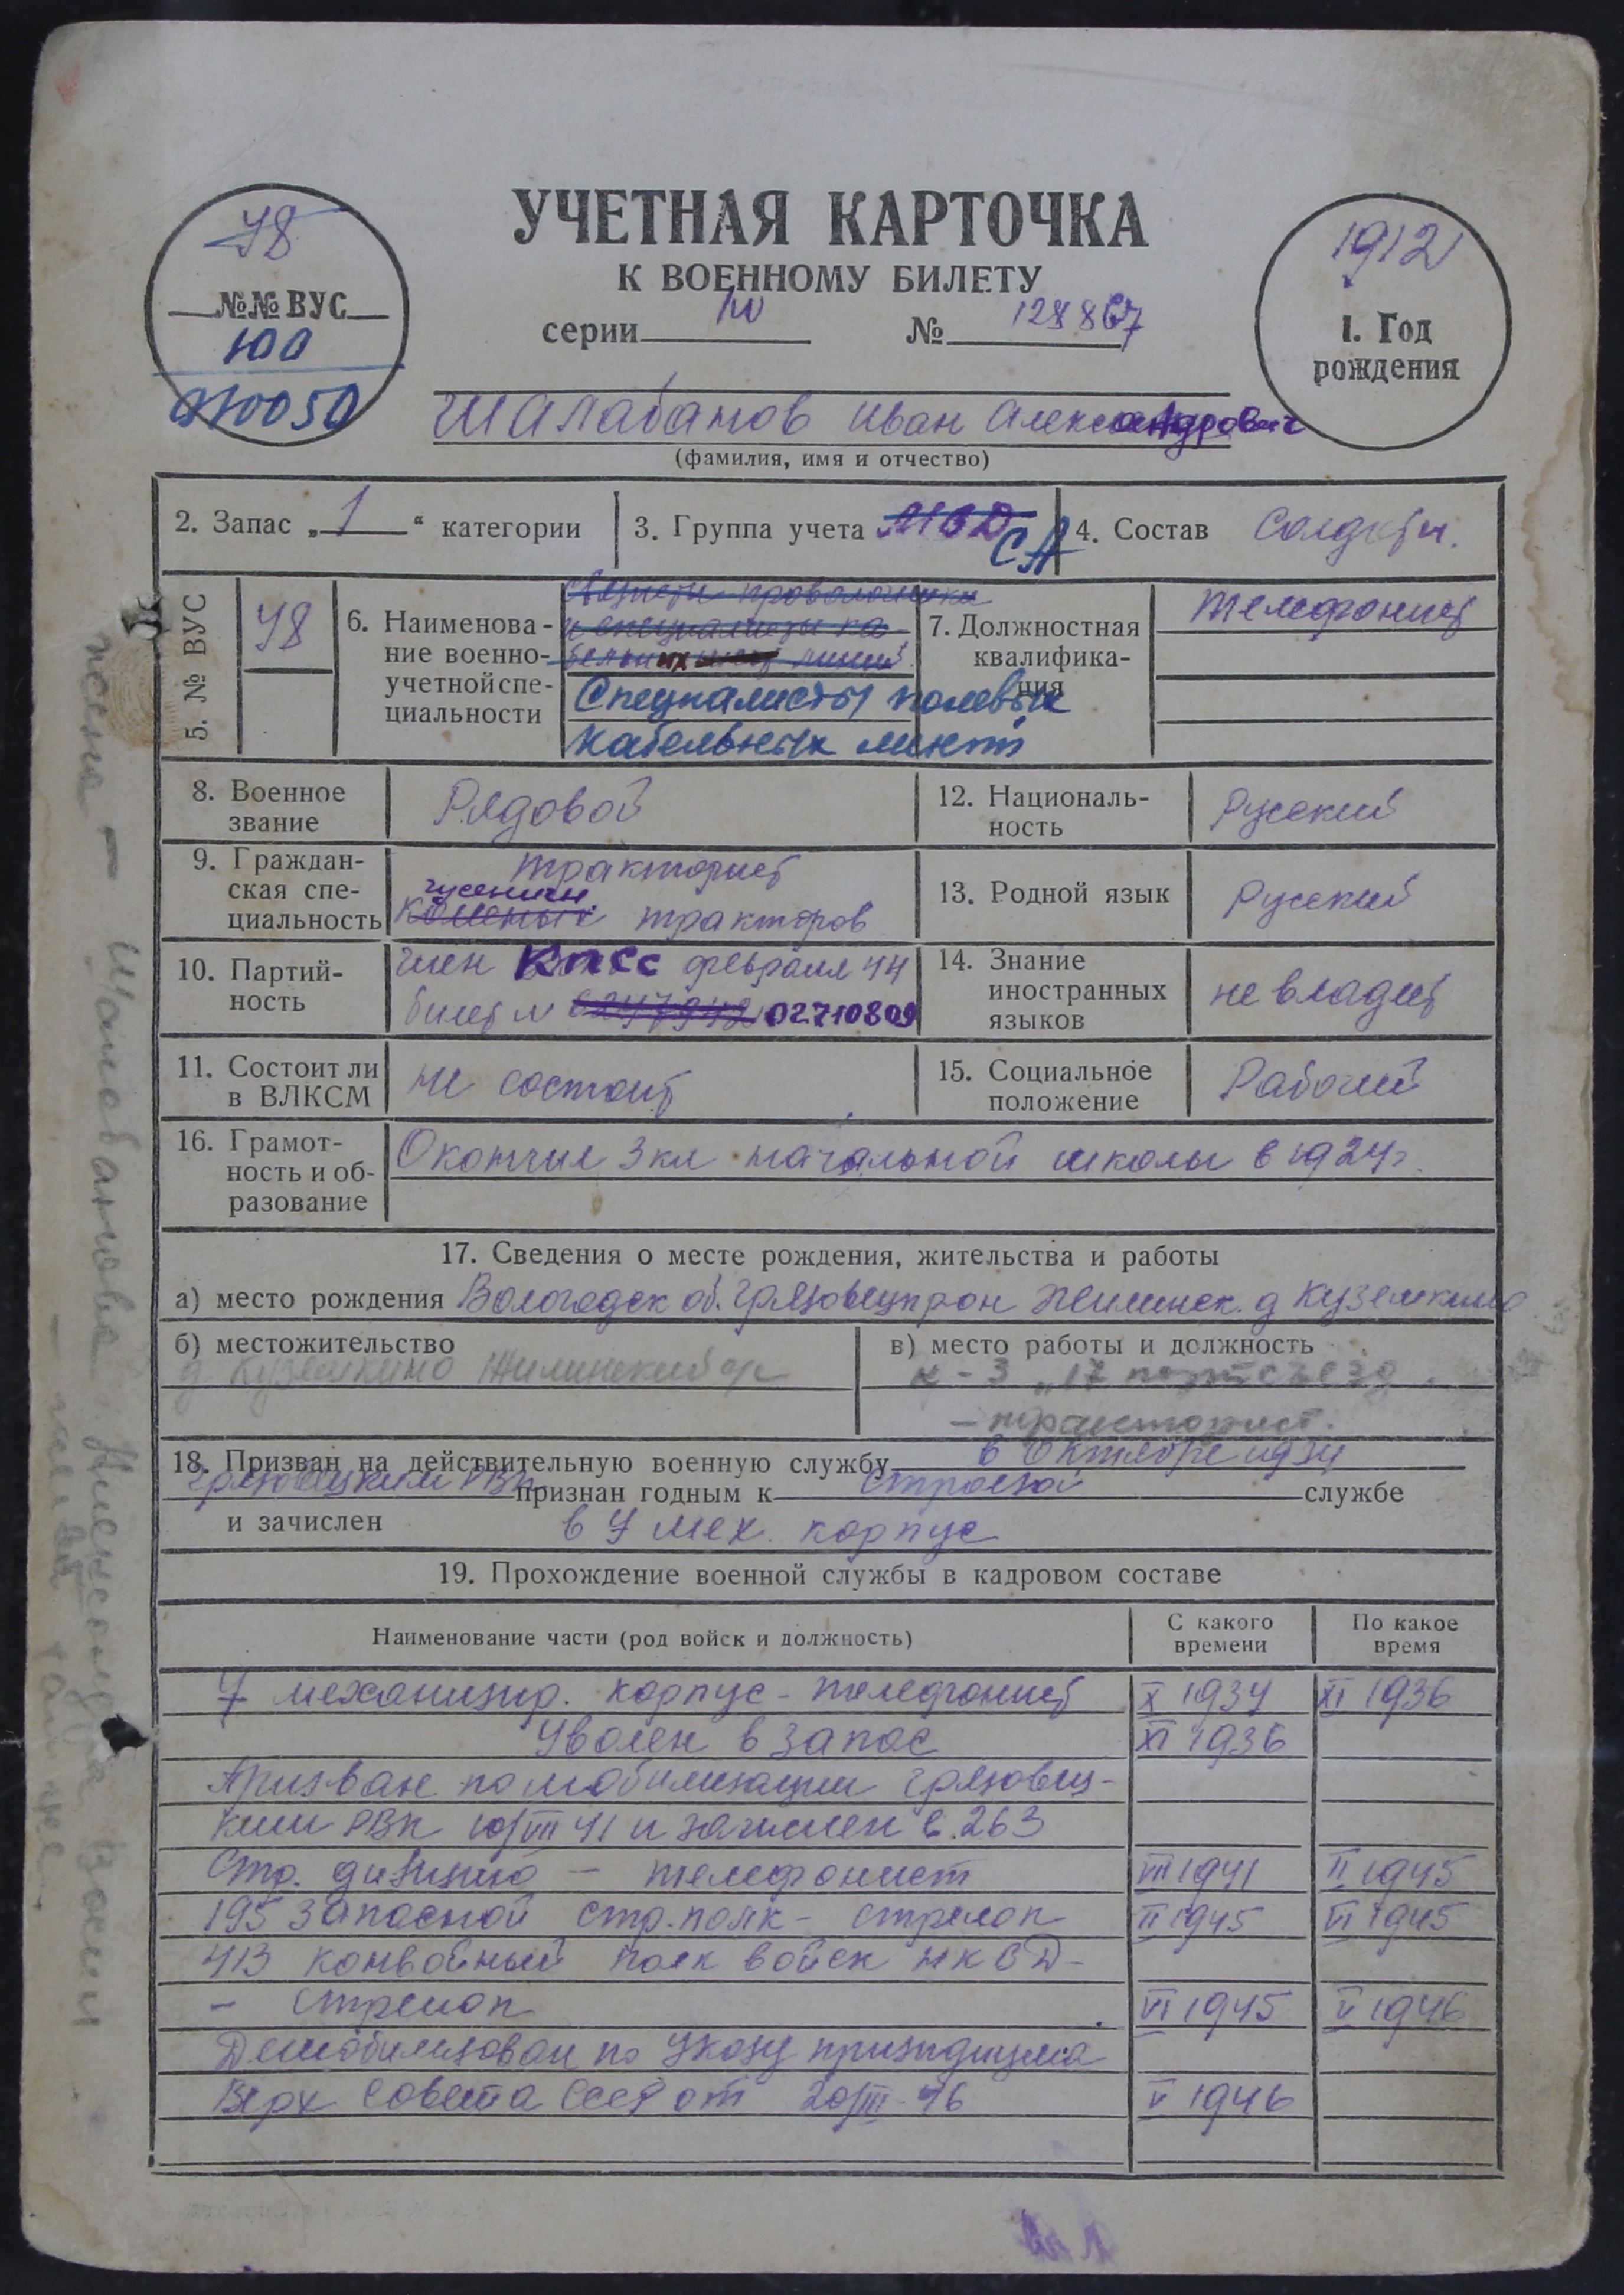 УЧЕТНАЯ КАРТОЧКА
К ВОЕННОМУ БИЛЕТУ
серии № 128867
78
№№ ВУС
100
1912
1. Год
рождения
Шалабанов Иван Александрович
(фамилия, имя и отчество)
2. Запас „ 1 “ категории
3. Группа учета СА
4. Состав Солдаты.
5. № ВУС 78
6. Наименова-
ние военно-
учетной спе-
циальности
Специалисты полевых
кабельных линий
7. Должностная
квалифика-
ция
телефонист
8. Военное
звание
Рядовой
12. Националь-
ность
Русский
9. Граждан-
ская спе-
циальность
тракторист
гусеничн.
тракторов
13. Родной язык
Русский
10. Партий-
ность
член КПСС февраля 44
билет № 02710809
14. Знание
иностранных
языков
не владеет
11. Состоит ли
в ВЛКСМ
не состоит
15. Социальное
положение
Рабочий
16. Грамот-
ность и об-
разование
Окончил 3 кл начальной школы в 1924г.
17. Сведения о месте рождения, жительства и работы
а) место рождения Вологодск об. Грязовецк рон Жилинск. д Кузёмкино
б) местожительство
д Куземкино Жилинский
в) место работы и должность
к-з „17 партсъезд
- тракторист.
18. Призван на действительную военную службу в Октябре 1934
Грязовецким РВК признан годным к строевой службе
и зачислен в 7 мех. корпус
19. Прохождение военной службы в кадровом составе
Наименование части (род войск и должность)
С какого
времени
По какое
время
7 механизир. корпус - телефонист X 1934 XI 1936
Уволен в запас XI 1936
Призван по мобилизации Грязовец-
ким РВК 10/VIII 41 и зачислен в 263
стр. дивизию - телефонист VIII 1941 II 1945
195 запасной стр. полк - стрелок II 1945 VI 1945
413 конвойный полк войск НКВД -
- стрелок VI 1945 V 1946
Демобилизован по Указу призидиума
Верх Совета СССР от 20/III-46 V 1946
жена - Шалабанова